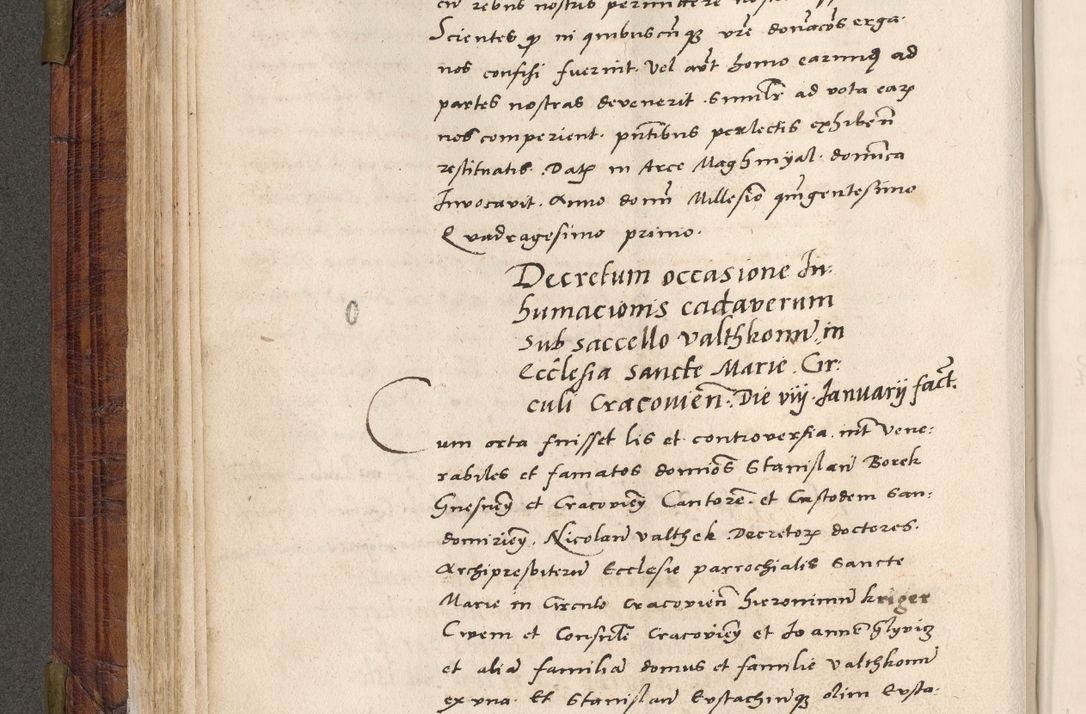 Scientes qꝫ in quibuscũqꝫ vrẽ donacõs erga
nos confisi fuerint. Vel aut̃ homo earumqꝫ ad
partes nostras devenerit. similr̃ ad vota eaꝝ
nos comperient. pñtibus perlectis exhibeñ
restituatis. Datꝫ in Arce Maghniyal. domĩca
Invocavit. Anno domĩ Millesiõ quĩgentesimo
Quadragesimo primo.
Decretum occasione In:
humacionis cadaverum
sub saccello valthkonũ. in
Ecclesia sancte Marie. Cir:
culi Cracovieñ. Die viij. Januarij fact̃.
Cum orta fuisset lis et controversia. int̃ Vene:
rabiles et famatos domiõs Stanislaũ Borek
Gnesneñ et Cracovieñ Cantorẽ. et Custodem San:
domirieñ. Nicolaũ Valthek. Decretoꝝ doctores.
Archipresbiterũ Ecclesie parrochialis Sancte
Marie in Circulo Cracovieñ hieronimũ kriger
Civem et Consulẽ Cracovieñ et Joannẽ
et aliã familiã domus et familie Valthkonũ
ex una. Et Stanislaũ Eustachiũqꝫ olim Eusta: